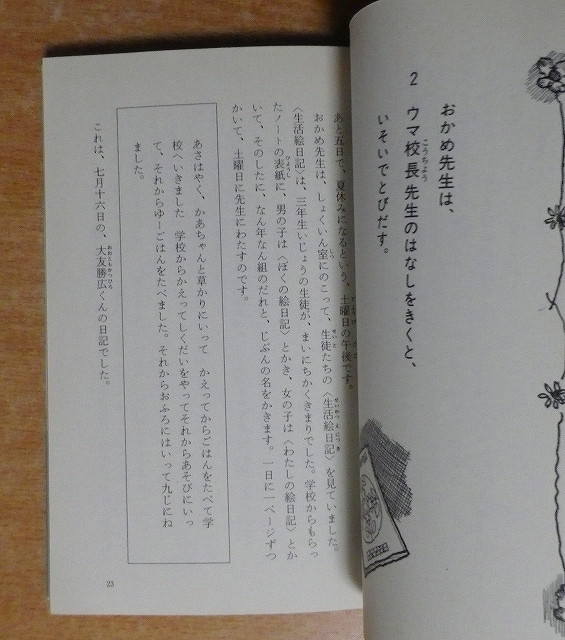 2
おかめ先生は、
ウマ校長先生のはなしをきくと、
いそいでとびだす。
あと五日で、夏休みになるという、土曜日の午後です。
おかめ先生は、しょくいん室にのこって、生徒たちの〈生活絵日記〉を見ていました。
〈生活絵日記〉は、三年生いじょうの生徒が、まいにちかくきまりでした。学校からもらっ
たノートの表紙に、男の子は〈ぼくの絵日記〉とかき、女の子は〈わたしの絵日記〉とか
いて、そのしたに、なん年なん組のだれと、じぶんの名をかきます。一日に一ページずつ
かいて、土曜日に先生にわたすのです。
あさはやく、かあちゃんと草かりにいって　かえってからごはんをたべて学
校へいきました　学校からかえってしくだいをやってそれからあそびにいっ
て、それからゆーごはんをたべました。それからおふろにはいって九じにね
ました。
これは、七月十六日の、大友勝広くんの日記でした。
23